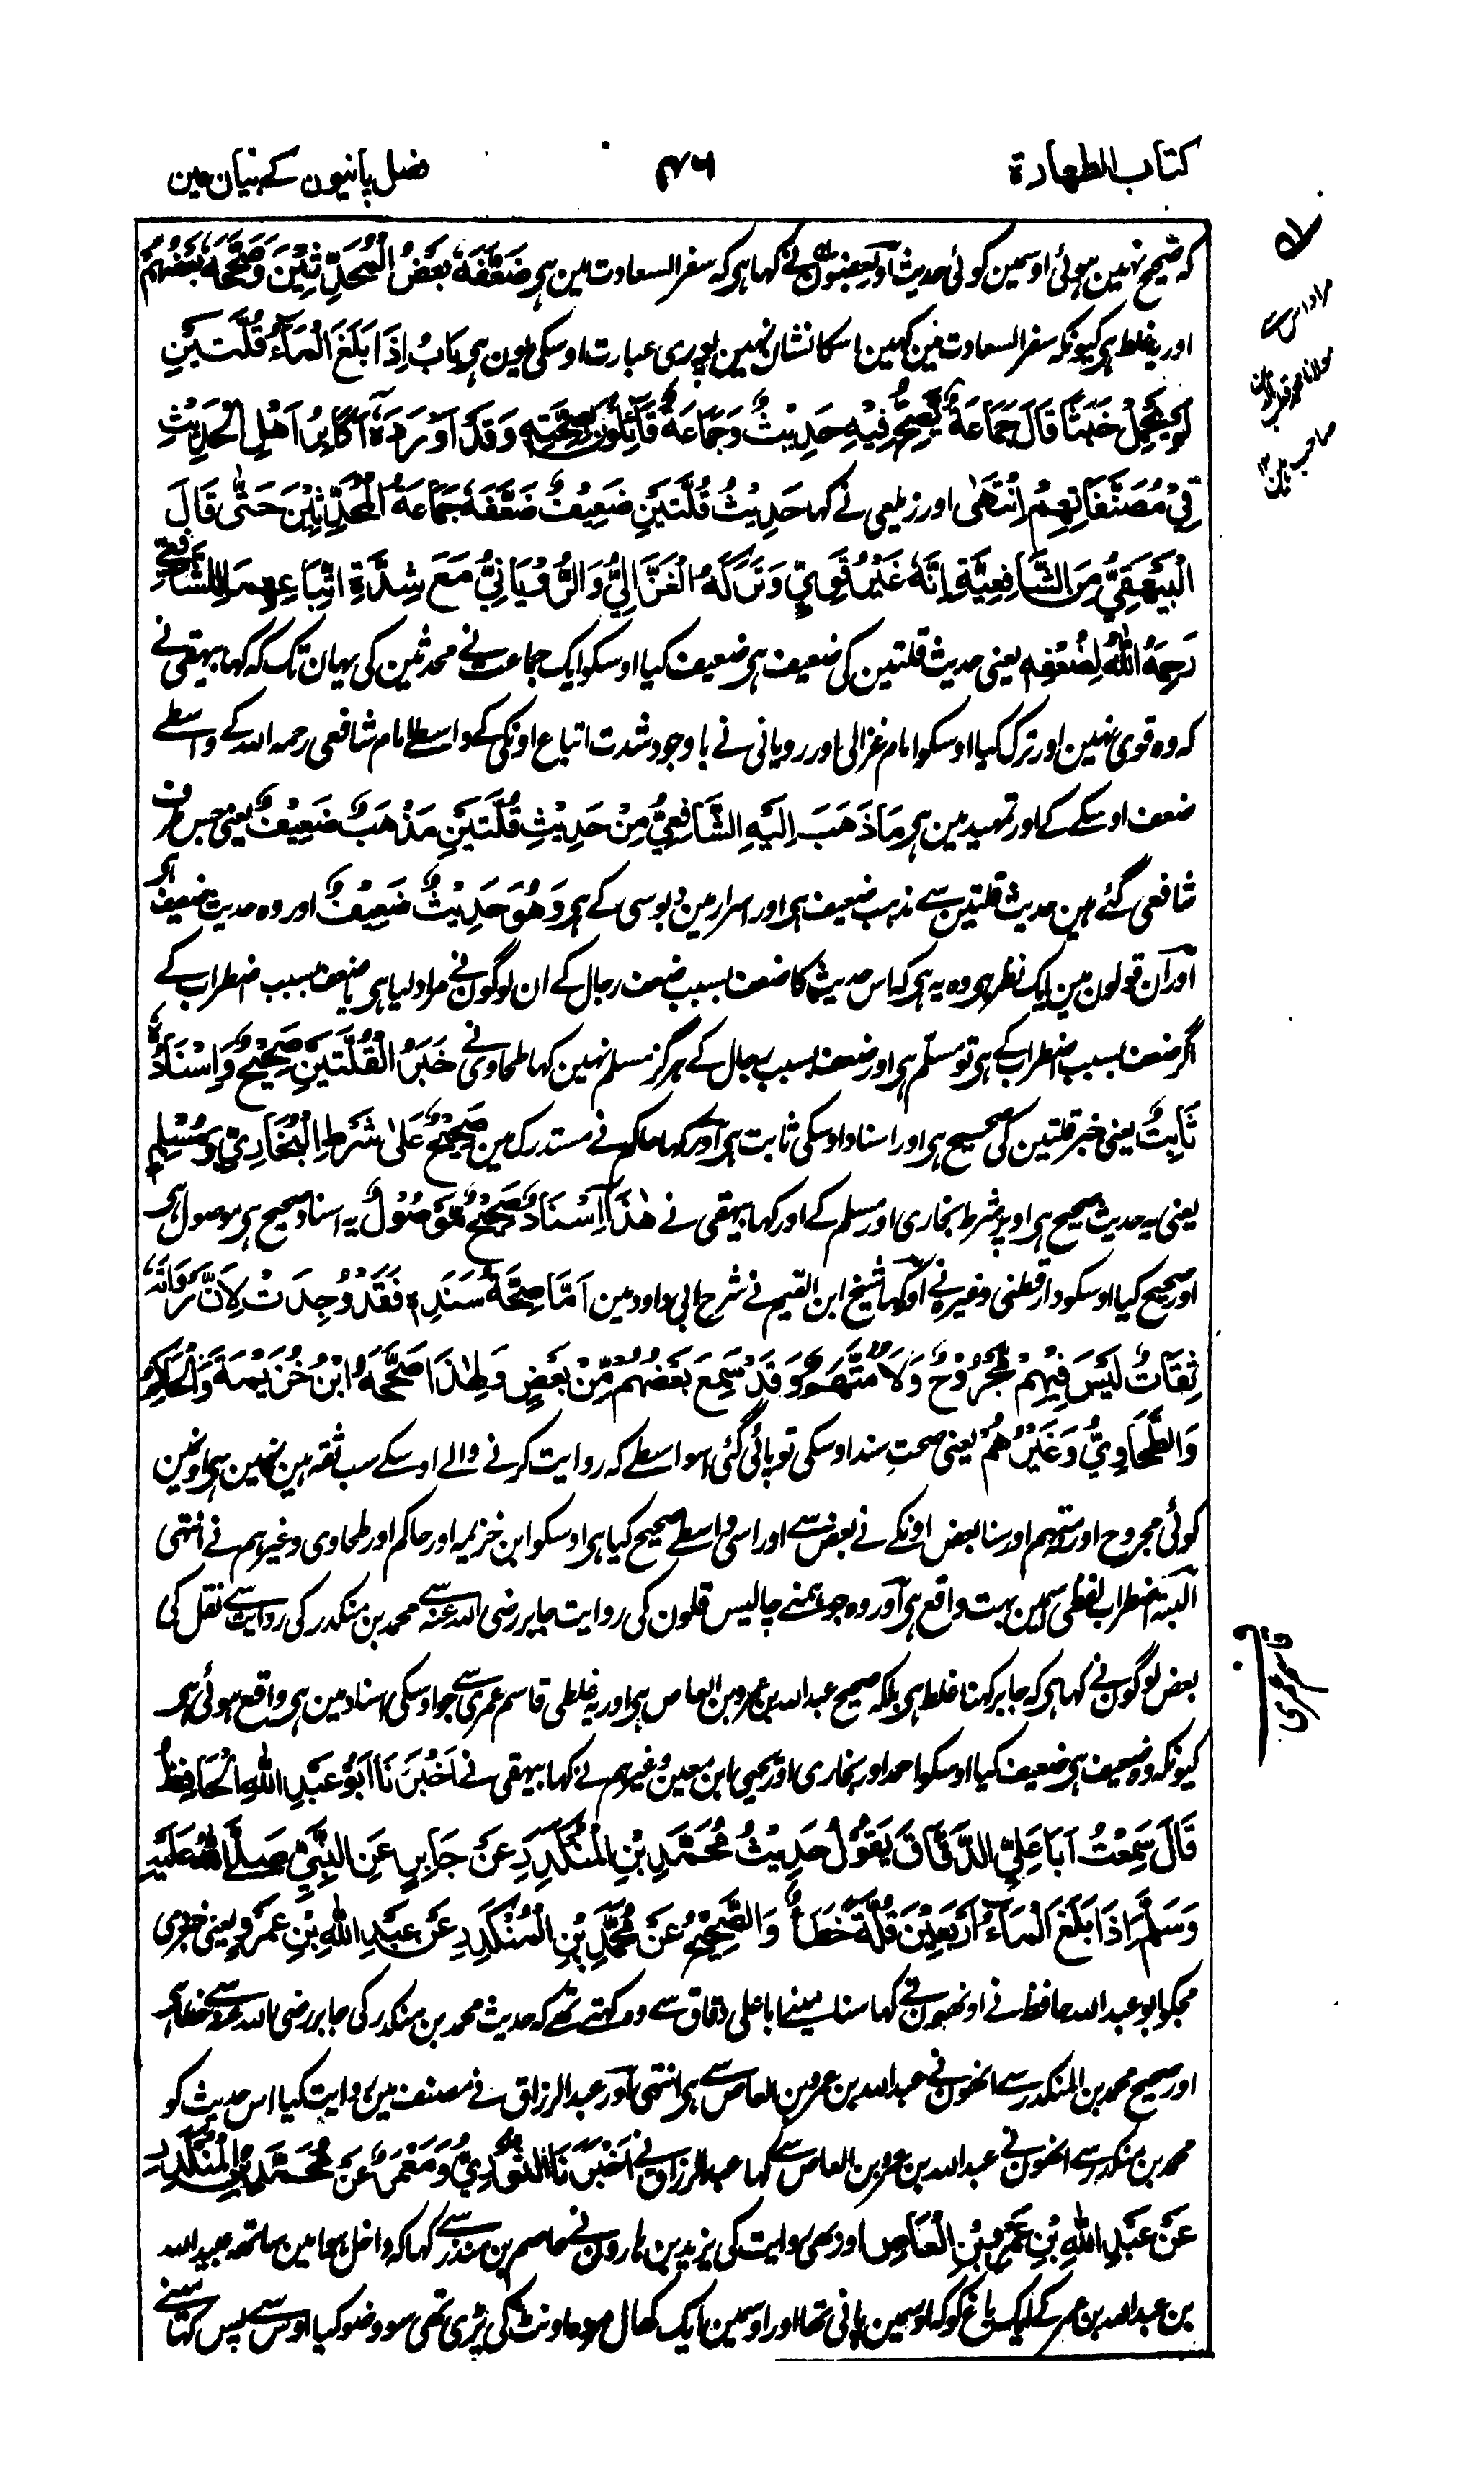 کتاب الطہارۃ
۴۷۶
فصل پانیون کے بیان مین
کہ صحیح نہین ہوئی اوسمین کوئی حدیث اور بعضون نے کہا ہی کہ سفر السعادت مین ہی ضَعَّفَهٗ بَعْضُ الْمُحَدِّثِيْنَ وَصَحَّحَهٗ بَعْضُهُمْ
اور یہ غلط ہی کیونکہ سفر السعادت مین کہین اسکا نشان نہین پوری عبارت اوسکی یون ہی بَابُ اِذَا بَلَغَ الْمَاءُ قُلَّتَيْنِ
لَمْ يَحْمِلْ خَبَثًا قَالَ جَمَاعَةٌ لَمْ يَصِحَّ فِيْهِ حَدِيْثٌ وَجَمَاعَةٌ قَائِلُوْنَ بِصِحَّتِهٖ وَقَدْ اَوْرَدَهٗ اَكَابِرُ اَهْلِ الْحَدِيْثِ
فِيْ مُصَنَّفَاتِهِمْ اِنْتَهٰى اور زیلعی نے کہا حَدِيْثُ قُلَّتَيْنِ ضَعِيْفٌ ضَعَّفَهٗ جَمَاعَةُ الْمُحَدِّثِيْنَ حَتّٰى قَالَ
الْبَيْهَقِيُّ مِنَ الشَّافِعِيَّةِ اِنَّهٗ غَيْرُ قَوِيٍّ وَتَرَكَهُ الْغَزَّالِيُّ وَالرُّوْيَانِيُّ مَعَ شِدَّةِ اتِّبَاعِهِمَا لِلشَّافِعِيِّ
رَحِمَهُ اللّٰهُ لِضُعْفِهٖ یعنی حدیث قلتین کی ضعیف ہی ضعیف کیا اوسکو ایک جماعت نے محدثین کی یہان تک کہ کہا بیہقی نے
کہ وہ قوی نہین اور ترک کیا اوسکو امام غزالی اور رویانی نے باوجود شدت اتباع اونکی کے واسطے امام شافعی رحمہ اللہ کے واسطے
ضعف اوسکے کے اور تمہید مین ہی مَا ذَهَبَ اِلَيْهِ الشَّافِعِيُّ مِنْ حَدِيْثِ قُلَّتَيْنِ مَذْهَبٌ ضَعِيْفٌ یعنی جس طرف
شافعی گئے ہین حدیث قلتین سے مذہب ضعیف ہی اور اسرار مین دبوسی کے ہی وَهُوَ حَدِيْثٌ ضَعِيْفٌ اور وہ حدیث ضعیف ہی
اور ان قولون مین ایک نظر ہی وہ یہ ہی کہ اس حدیث کا ضعف بسبب ضعف رجال کے ان لوگون نے مراد لیا ہی یا ضعف بسبب اضطراب کے
اگر ضعف بسبب اضطراب کے ہی تو مسلّم ہی اور ضعف بسبب رجال کے ہرگز مسلم نہین کہا طحاوی نے خَبَرُ الْقُلَّتَيْنِ صَحِيْحٌ وَاِسْنَادُهٗ
ثَابِتٌ یعنی خبر قلتین کی صحیح ہی اور اسناد اوسکی ثابت ہی اور کہا حاکم نے مستدرک مین صَحِيْحٌ عَلٰى شَرْطِ الْبُخَارِيِّ وَمُسْلِمٍ
یعنی یہ حدیث صحیح ہی اوپر شرط بخاری اور مسلم کے اور کہا بیہقی نے هٰذَا اِسْنَادٌ صَحِيْحٌ مَوْصُوْلٌ یہ اسناد صحیح ہی موصول ہی
اور صحیح کیا اوسکو دارقطنی وغیرہ نے اور کہا شیخ ابن القیم نے شرح ابی داود مین اَمَّا صِحَّةُ سَنَدِهٖ فَقَدْ وُجِدَتْ لِاَنَّ رُوَاتَهٗ
ثِقَاتٌ لَيْسَ فِيْهِمْ مَجْرُوْحٌ وَلَا مُتَّهَمٌ وَقَدْ سَمِعَ بَعْضُهُمْ مِنْ بَعْضٍ وَلِهٰذَا صَحَّحَهُ ابْنُ خُزَيْمَةَ وَالْحَاكِمُ
وَالطَّحَاوِيُّ وَغَيْرُهُمْ یعنی صحت سند اوسکی تو پائی گئی اسواسطے کہ روایت کرنے والے اوسکے سب ثقہ ہین نہین ہی اونمین
کوئی مجروح اور متہم اور سنا بعض اونکے نے بعض سے اور اسی واسطے صحیح کیا ہی اوسکو ابن خزیمہ اور حاکم اور طحاوی وغیرہم نے انتہی
البتہ اضطراب لفظی اسمین بہت واقع ہی اور وہ جو ہمنے چالیس قلون کی روایت جابر رضی اللہ عنہ سے محمد بن منکدر کی روایت سے نقل کی
بعض لوگون نے کہا ہی کہ جابر کہنا غلط ہی بلکہ صحیح عبد اللہ بن عمرو بن العاص ہی اور یہ غلطی قاسم عمری سے جو اوسکی اسناد مین ہی واقع ہوئی ہی
کیونکہ وہ ضعیف ہی ضعیف کیا اوسکو احمد اور بخاری اور یحیی ابن معین وغیرہم نے کہا بیہقی نے اَخْبَرَنَا اَبُوْ عَبْدِ اللّٰهِ الْحَافِظُ
قَالَ سَمِعْتُ اَبَا عَلِيٍّ الدَّقَّاقَ يَقُوْلُ حَدِيْثُ مُحَمَّدِ بْنِ الْمُنْكَدِرِ عَنْ جَابِرٍ عَنِ النَّبِيِّ صَلَّى اللّٰهُ عَلَيْهِ
وَسَلَّمَ اِذَا بَلَغَ الْمَاءُ اَرْبَعِيْنَ قُلَّةً خَطَأٌ وَالصَّحِيْحُ عَنْ مُحَمَّدِ بْنِ الْمُنْكَدِرِ عَنْ عَبْدِ اللّٰهِ بْنِ عَمْرٍو یعنی خبر دی
مجکو ابو عبد اللہ حافظ نے اونھون نے کہا سنا مینے ابا علی دقاق سے وہ کہتے تھے کہ حدیث محمد بن منکدر کی جابر رضی اللہ عنہ سے خطا ہی
اور صحیح محمد بن المنکدر سے انھون نے عبد اللہ بن عمرو بن العاص سے ہی انتہی اور عبد الرزاق نے مصنف مین روایت کیا اس حدیث کو
محمد بن منکدر سے انھون نے عبد اللہ بن عمرو بن العاص سے کہا عبد الرزاق نے اَخْبَرَنَا الثَّوْرِيُّ وَمَعْمَرٌ عَنْ مُحَمَّدِ بْنِ الْمُنْكَدِرِ
عَنْ عَبْدِ اللّٰهِ بْنِ عَمْرِو بْنِ الْعَاصِ اور بھی روایت کی یزید بن ہارون نے عاصم بن منذر سے کہا کہ داخل ہوا مین ساتھ عبید اللہ
بن عبد اللہ بن عمر کے ایک باغ کو کہ اوسمین پانی تھا اور اوسمین ایک کھال مردہ اونٹ کی پڑی تھی سو وضو کیا اوس سے پس کہا مینے
مراد اس سے
مولانا محمد قطب الدین
صاحب ہین ۱۲
قاسم عمری